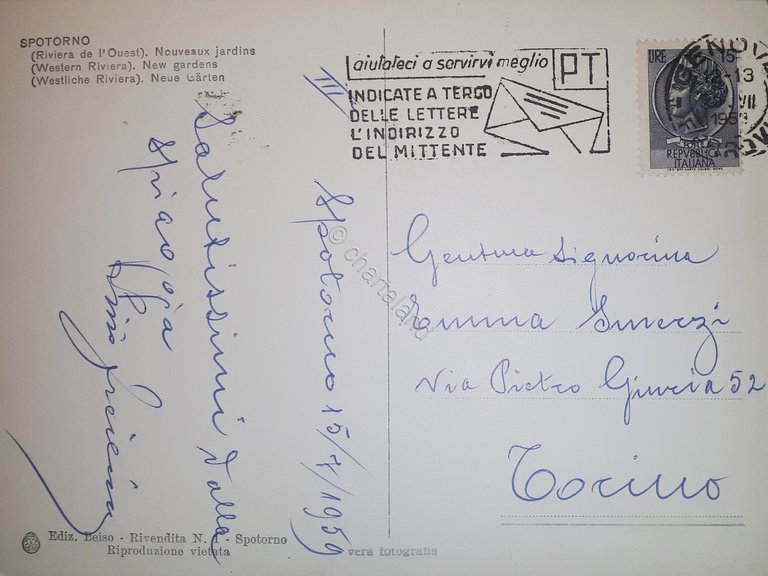 SPOTORNO
(Riviera de l'Ouest). Nouveaux jardins
(Western Riviera). New gardens
(Westliche Riviera). Neue Gärten
aiutateci a servirvi meglio
PT
INDICATE A TERGO
DELLE LETTERE
L'INDIRIZZO
DEL MITTENTE
LIRE 15
POSTE
REPVBBLICA
ITALIANA
GENOVA
13
VII
Spotorno 15/7/1959
Salutissimi dalla
spiaggia
Gentma Signorina
Emma Smerzi
Via Pietro Giuria 52
Torino
Ediz. Beiso - Rivendita N. 1 - Spotorno
Riproduzione vietata
vera fotografia
© chartaland